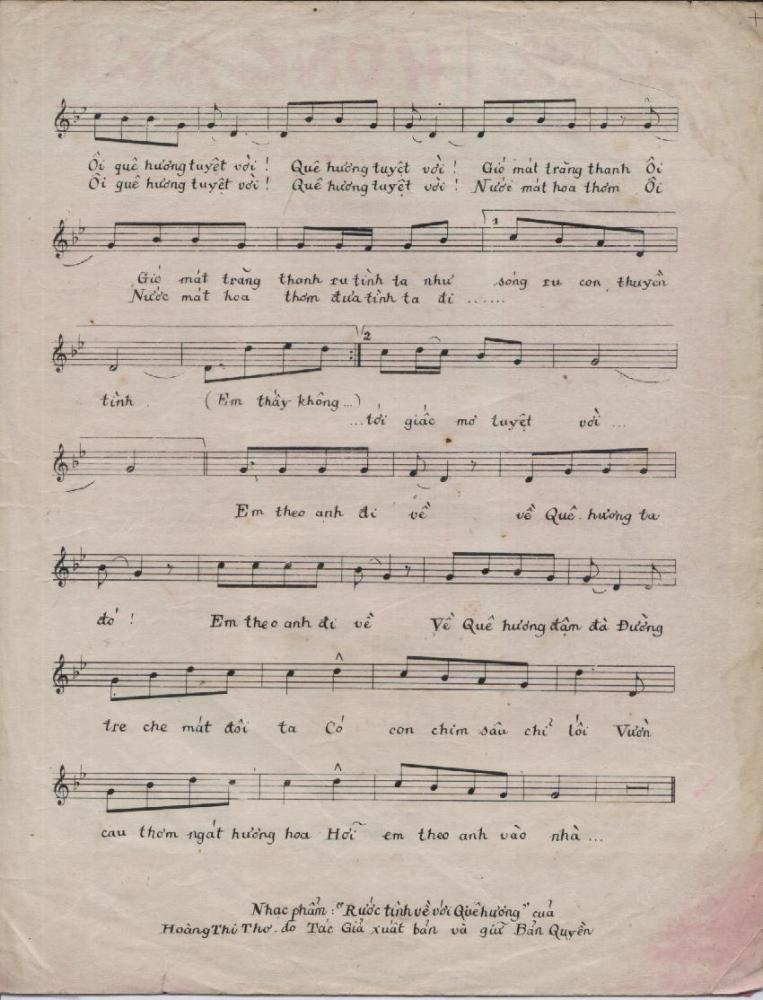 Ôi quê hương tuyệt vời! Quê hương tuyệt vời! Gió mát trăng thanh Ôi
Ôi quê hương tuyệt vời! Quê hương tuyệt vời! Nước mát hoa thơm Ôi
1
Gió mát trăng thanh ru tình ta như sóng ru con thuyền
Nước mát hoa thơm đưa tình ta đi ......
2
tình (Em thấy không...)
...tới giấc mơ tuyệt vời...
Em theo anh đi về về Quê hương ta
đó! Em theo anh đi về Về Quê hương đậm đà Đường
tre che mát đôi ta Có con chim sâu chỉ lối Vườn
cau thơm ngát hương hoa Hỡi em theo anh vào nhà...
Nhạc phẩm: "Rước tình về với Quê hương" của
Hoàng Thi Thơ. do Tác Giả xuất bản và giữ Bản Quyền